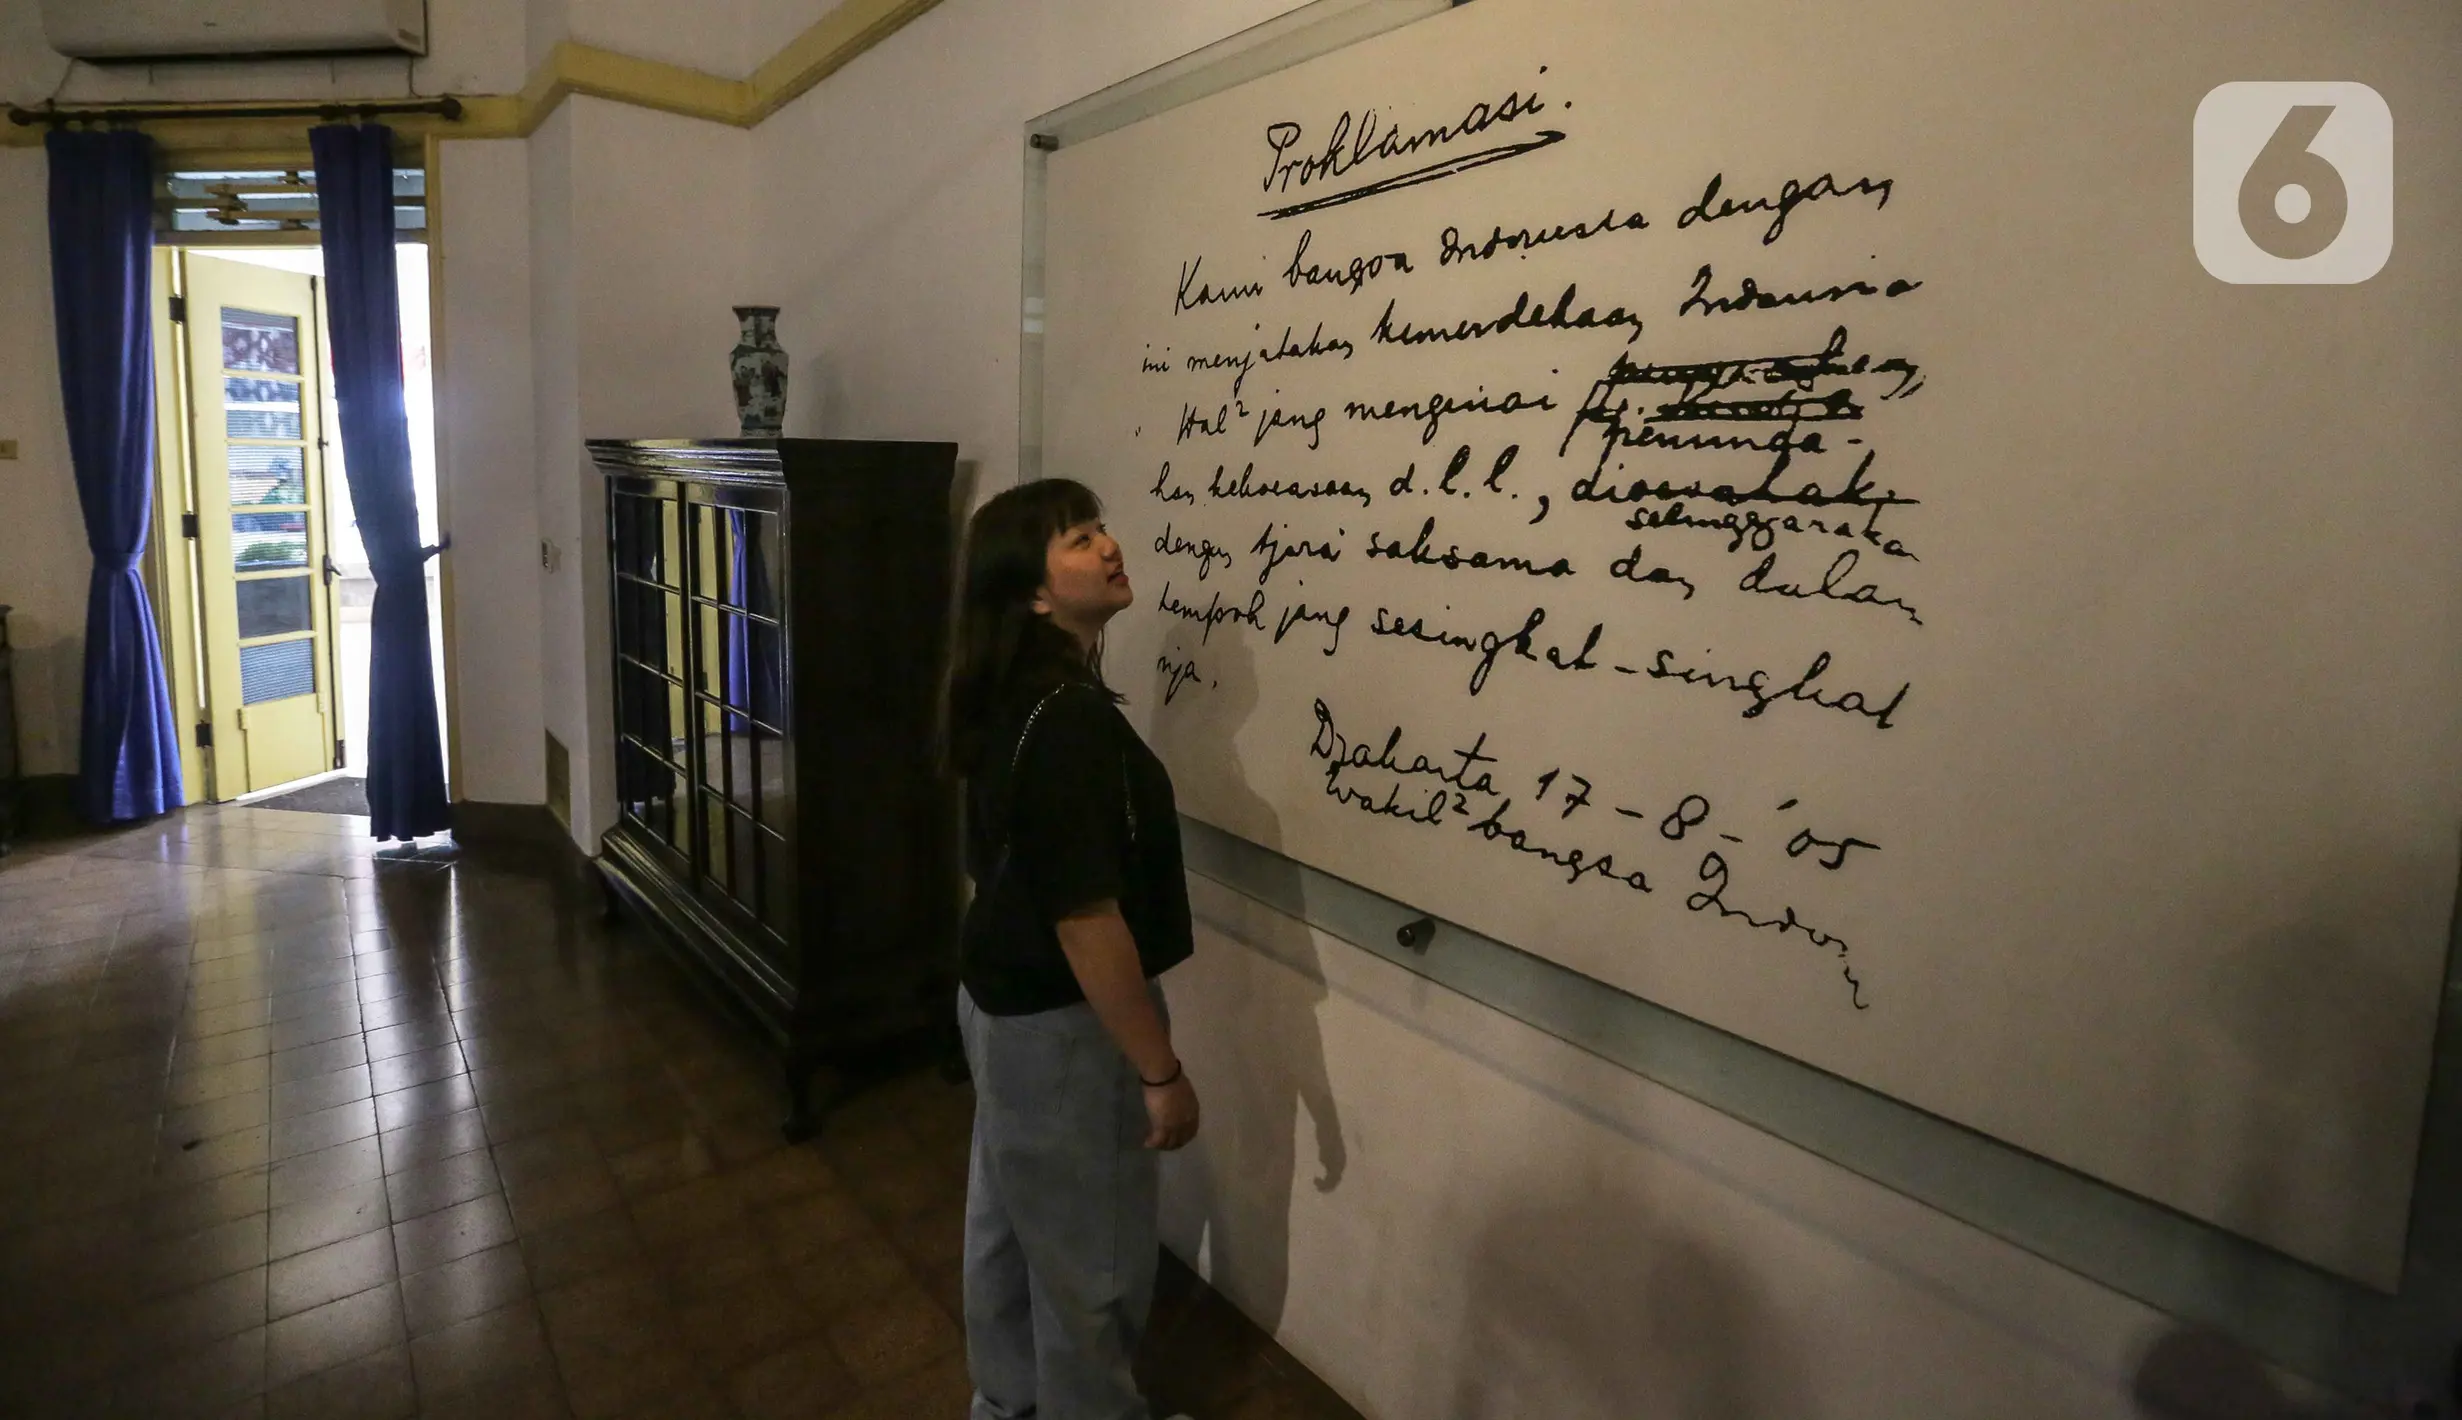 Proklamasi.
Kami bangsa Indonesia dengan
ini menjatakan kemerdekaan Indonesia
Hal² jang mengenai
peminda-
han kekoeasaan d.l.l., dioesahakan
selenggarakan
dengan tjara saksama dan dalam
tempoh jang sesingkat-singkat
nja.
Djakarta 17-8-'05
Wakil² bangsa Indon
6